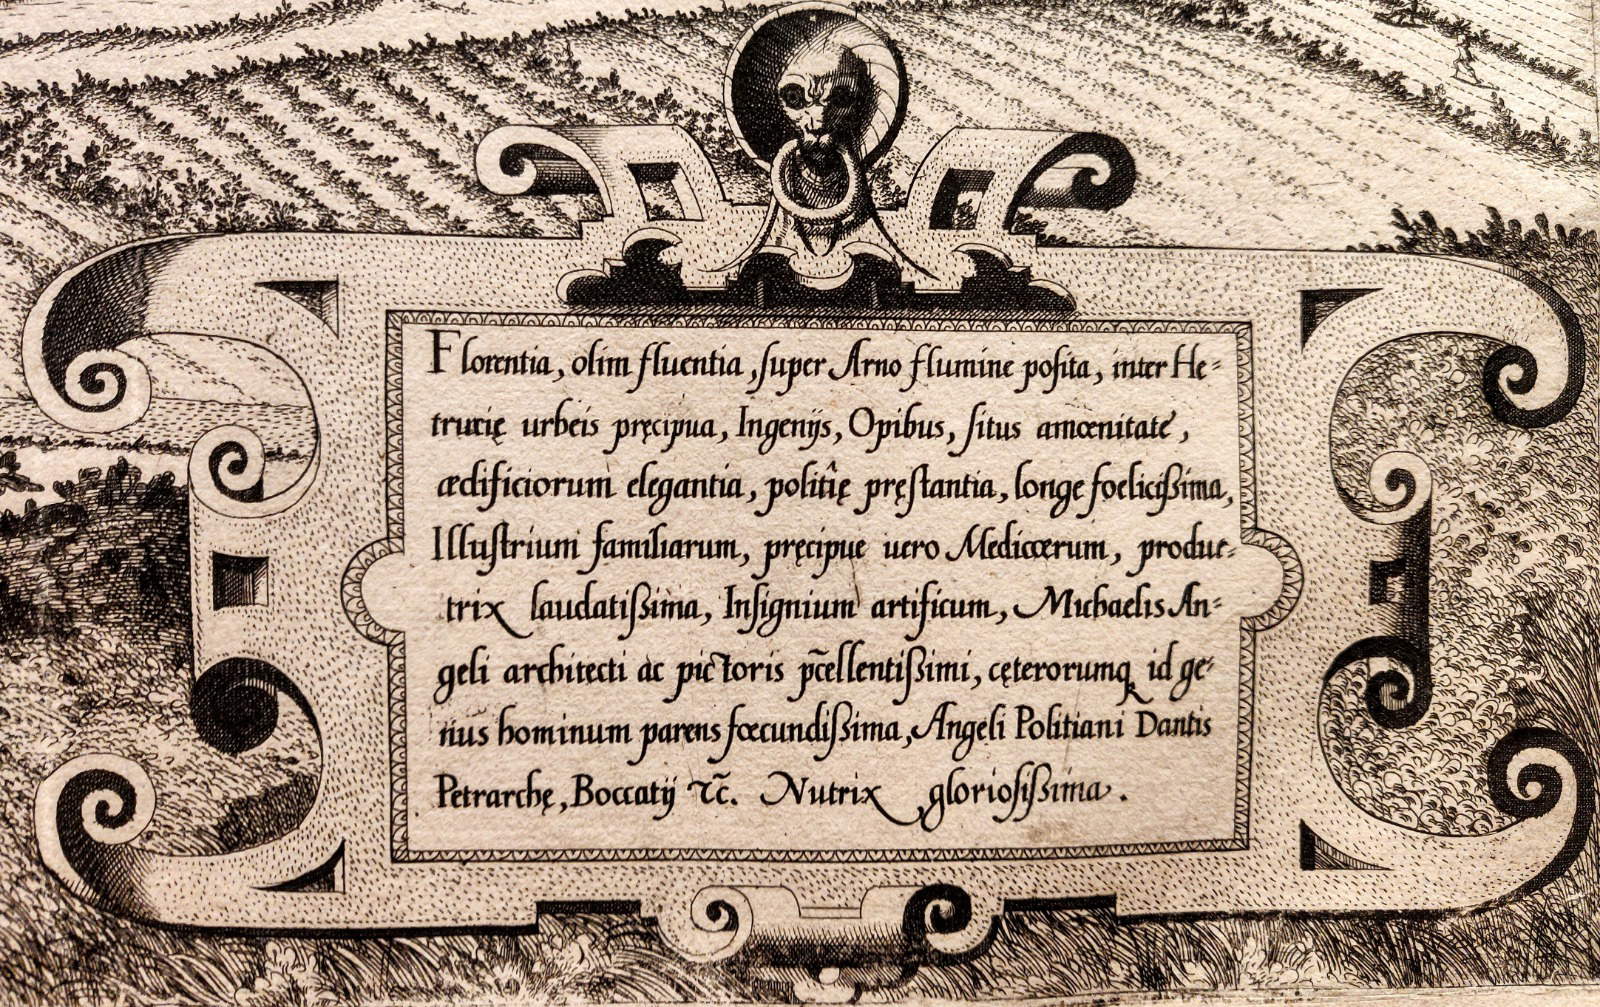 Florentia, olim fluentia, super Arno flumine posita, inter He-
trurię urbeis pręcipua, Ingenijs, Opibus, situs amœnitate,
ædificiorum elegantia, politię pręstantia, longe foelicißima,
Illustrium familiarum, pręcipue uero Mediceerum, produc-
trix laudatißima, Insignium artificum, Michaelis An-
geli architecti ac pictoris p̄cellentißimi, cęterorumq id ge-
nus hominum parens fœcundißima, Angeli Politiani Dantis
Petrarchę, Boccatij ⁊c̄. Nutrix gloriosißima.